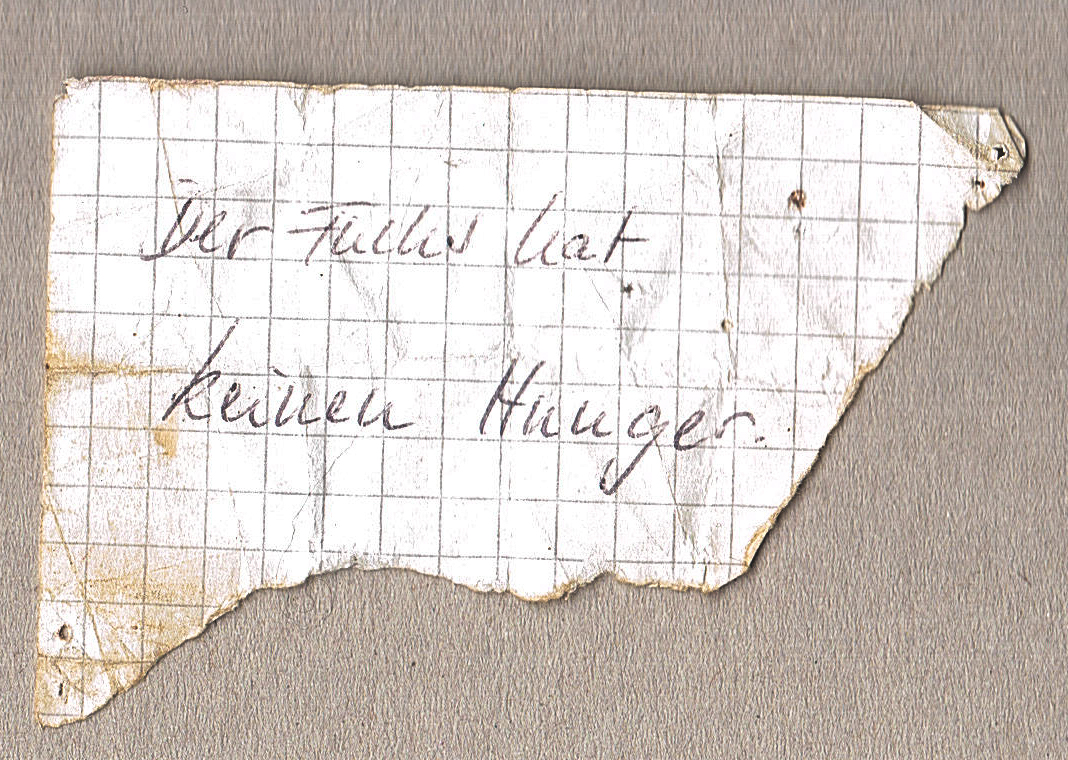 Der Fuchs hat
keinen Hunger.